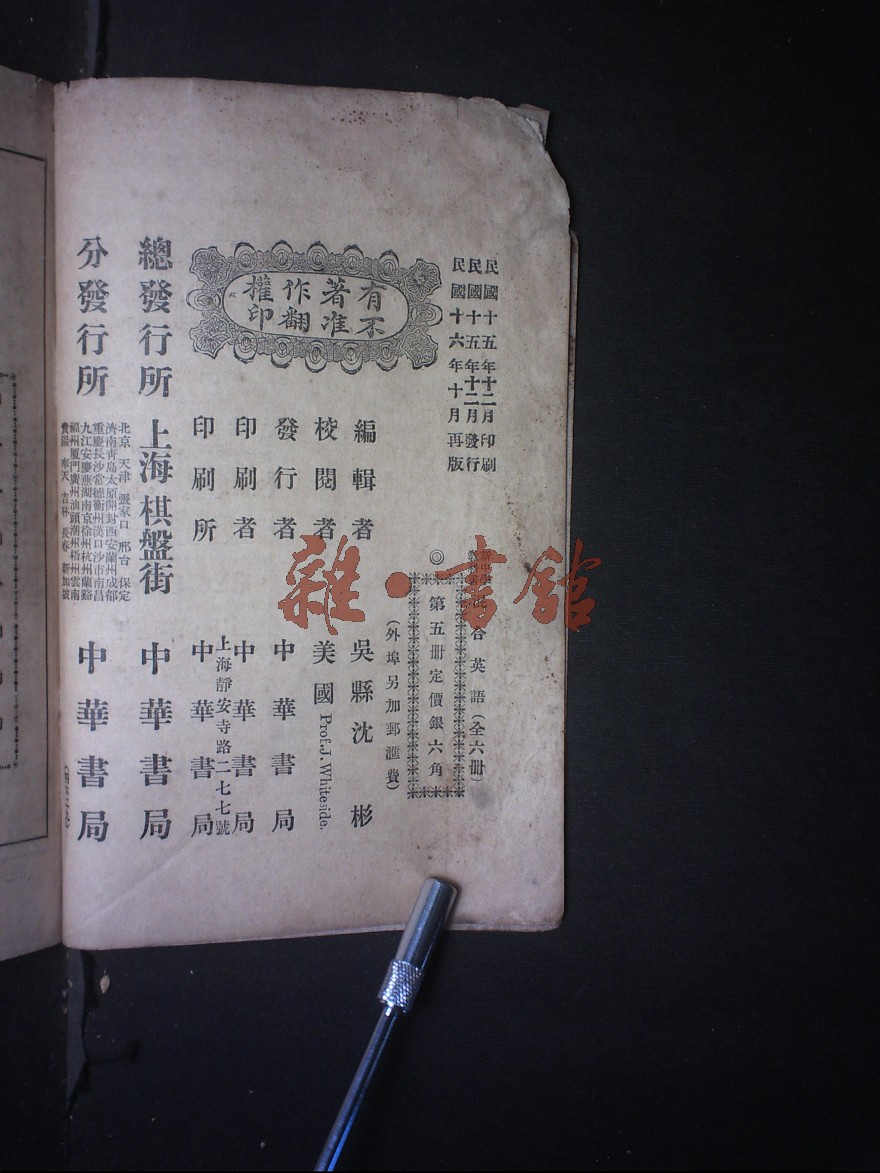 民國十五年十二月印刷
民國十五年十二月發行
民國十六年十月再版
混合英語(全六册)
◎第五册定價銀六角
(外埠另加郵滙費)
有不
著准
作翻
權印
編輯者 吳縣沈彬
校閱者 美國 Prof. J. Whiteside.
發行者 中華書局
印刷者 中華書局
上海靜安寺路二七七號
印刷所 中華書局
總發行所 上海棋盤街 中華書局
分發行所 中華書局
北京 天津 張家口 邢台 保定
濟南青島太原開封西安蘭州成都
重慶長沙常德衡州漢口沙市南昌
九江安慶蕪湖南京徐州杭州蘭谿
福州厦門廣州汕頭潮州梧州雲南
貴陽 奉天 吉林 長春 新加坡
雜·書館